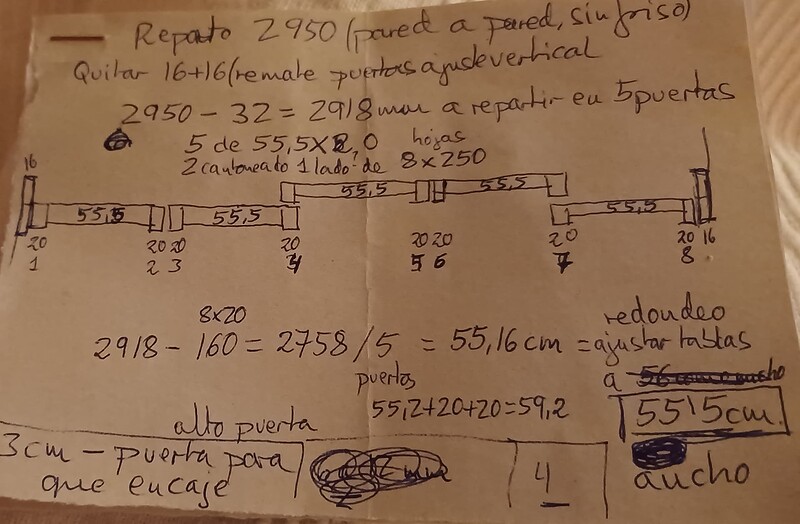 Reparto 2950 (pared a pared, sin friso)
Quitar 16+16 (remate puertas ajuste vertical
2950 - 32 = 2918 mm a repartir en 5 puertas
5 de 55,5 x 2,0 hojas
2 canteado 1 lado? de 8 x 250
16
55,5 55,5 55,5 55,5 55,5
20 20 20 20 20 20 20 20 16
1 2 3 4 5 6 7 8
8x20
2918 - 160 = 2758 / 5 = 55,16 cm = redondeo
puertas
ajustar tablas
a
55,2+20+20=59,2
55'5cm.
ancho
alto puerta
3cm - puerta para
que encaje
4